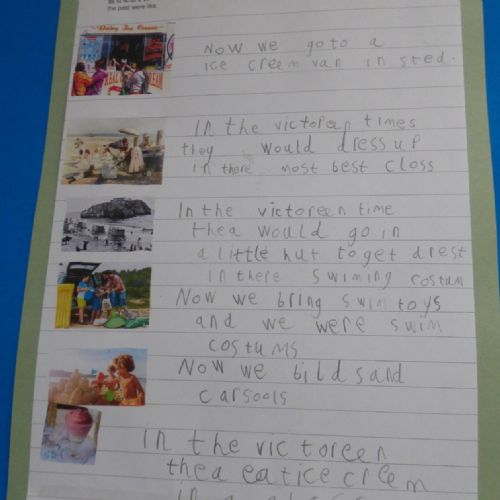 the past were like
Now we go to a
ice creem van in sted.
In the victoreen times
they would dress up
in there most best closs
In the victoreen time
thea would go in
a little hut to get drest
in there swiming costum
Now we bring swim toys
and we were swim
costums
Now we bild sand
carsools
In the victoreen
thea eat ice creem
in a